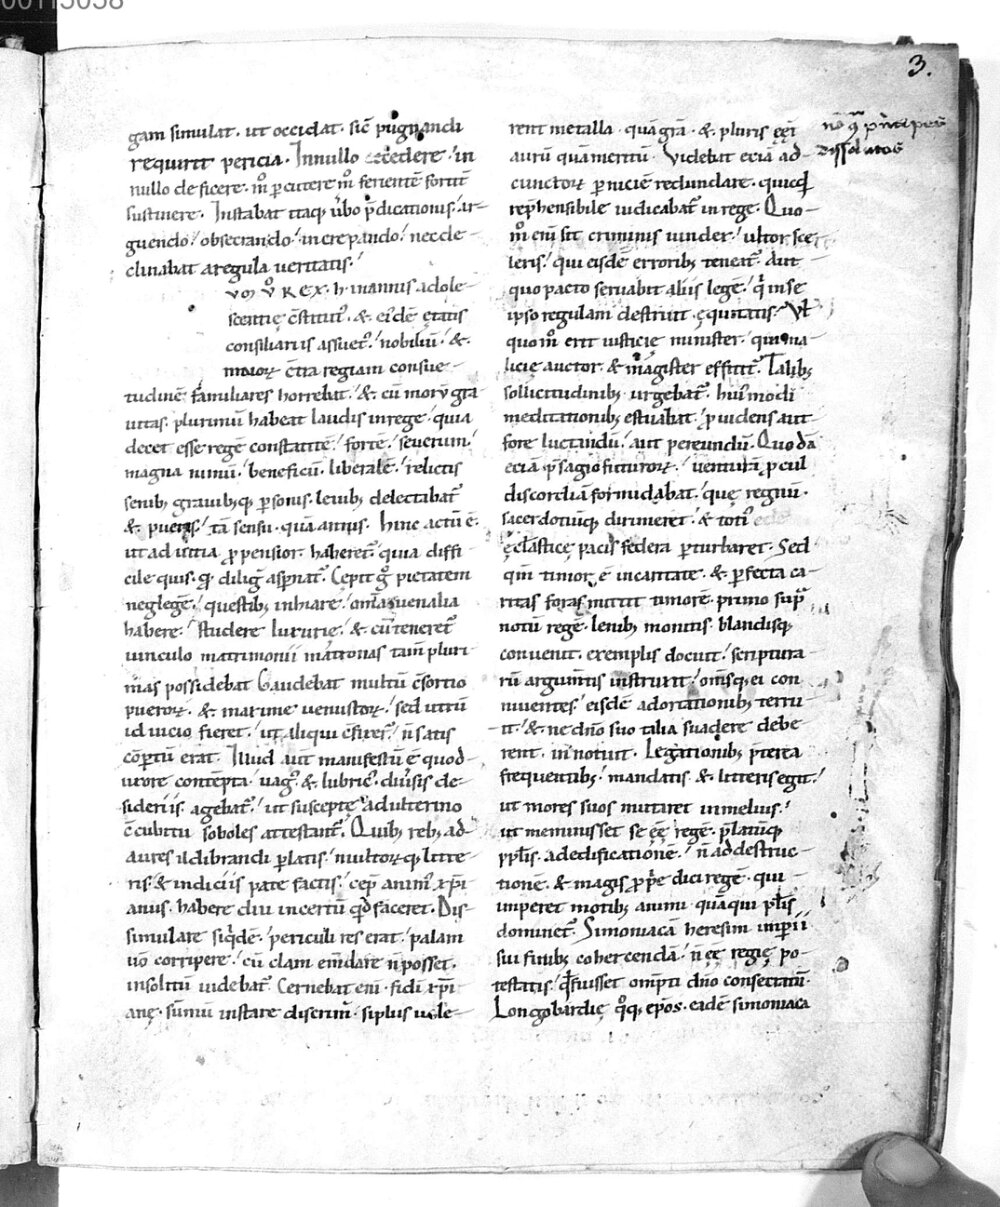 00115038
3.
gam simulat. ut occidat. sic̄ pugnandi
requirit pericia. In nullo cedere. in
nullo deficere. m̊ ꝑcutere m̊ ferientē fortit̄
sustinere. Instabat itaq; ůbo p̄dicationis. ar-
guendo. obsecrando. increpando. nec de-
clinabat a regula ueritatis.
REX. in annis adole-
scentie c̄stitut᷒. &. eisdē ętatis
consiliariis assuet᷒. nobiliū. &.
maioꝝ c̄tra regiam consue-
tudinē familiares horrebat. & cū morū gra
uitas. plurimū habeat laudis in rege. quia
decet esse regē constantē. fortē. seuerum.
magna nimū. beneficū. liberalē. relictis
senib; grauib;q; ꝑsonis. leuib; delectabat᷒
&. pueris. tā sensu. quā annis. hinc actū ē.
ut ad uitia ꝓpensior haberet᷒. quia diffi
cile quis. qd̄ diliḡ aspnat᷒. Cepit g̊ pietatem
neglegē. questib; inhiare. om̄a uenalia
habere. studere luxurię. & cū teneret᷒
uinculo matrimonii matronas tam̄ pluri-
mas possidebat Gaudebat multū c̄sortio
pueroꝝ. &. maxime uenustoꝝ. sed utrū
id uicio fieret. ut aliqui c̄fixer̄. n̄ satis
cōptū erat. Illud aut̄ manifestū ē quod
uxore contēpta. uag᷒. & lubric᷒. diuisis de-
sideriis. agebat᷒. ut susceptę adulterino
c̄cubitu soboles attestant᷒. Quib; reb; ad-
aures ildibrandi ꝑlatis. multoꝝq; litte-
ris. & indiciis patefactis. cep̄ anim᷒ xp̄i
anus. habere diu incertū qd̄ faceret. Dis-
simulare siqdē. periculi res erat. palam
uō corripere. cū clam em̄dare n̄ posset.
insolitū uidebat᷒. Cernebat eni. fidi xp̄i
anę. sūmū instare discrim̄. si plus uale-
rent metalla. quā gr̄a. &. pluris eēt
aurū quā meritū. Videbat eciā ad-
cunctoꝝ ꝑniciē redundare. quicqd̄
rep̄hensibile iudicabat᷒ in rege. Quo-
m̊ eni sit criminis uindex. ultor sce-
leris. qui eisdē errorib; tenet᷒. Aut
quo pacto seruabit aliis legē. q̄ in se
ipso regulam destruit ęquitatis. Vl̄
quom̊ erit iusticię minister. qui ma-
licię auctor. & magister effitit᷒. Talib;
sollicitudinib; urgebat᷒. hui᷒modi
meditationib; estuabat. ꝓuidens aut
fore luctandū. aut pereundū. Quodā
eciā p̄sagio futuroꝝ. uenturā ꝓcul
discordiā formidabat. quę regnū.
sacerdotiūq; dirimeret. & toti᷒
ęcl̄asticę pacis federa ꝑturbaret. Sed
qm̄ timor n̄ ē in caritate. &. ꝑfecta ca-
ritas foras mittit timorē. primo sup̄
notū regē. lenib; monitis. blandisq;
conuenit. exemplis docuit. scriptura-
rū argum̄tis instruxit. om̄sq; ei con
niuentes. eisdē adortationib; terru
it. & ne dn̄o suo talia suadere debe
rent. in notuit. Legationib; p̄terea
frequentib;. mandatis. &. litteris egit.
ut mores suos mutaret in melius.
ut meminisset se eē regē. p̄latūq;
pp̄lis. ad edificationē. n̄ ad destruc-
tionē. &. magis ꝓp̄e dici regē. qui
imperet motib; animi. quā qui pp̄lis
dominet᷒. Simoniacā heresim imꝑii
sui finib; cohercendā. n̄ eē regię po-
testatis. qd̄ fuisset om̄pti dn̄o consecratū.
Longobardię q̊q; ep̄os. eadē simoniaca